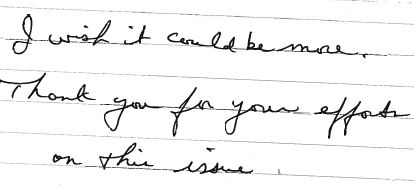 I wish it could be more.
Thank you for your efforts
on this issue.